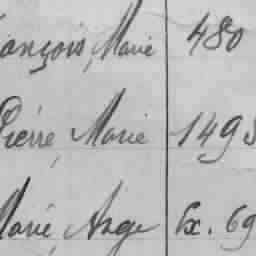 ançois, Marie 480
Pierre, Marie 149
Marie, Ange Ex. 69